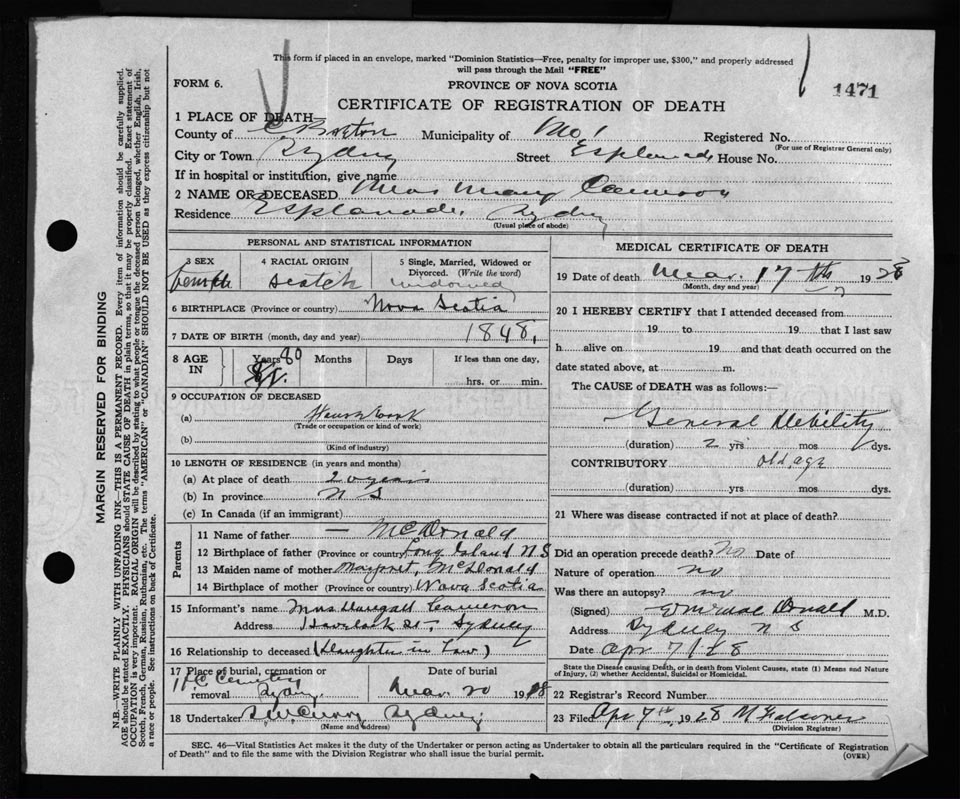 This form if placed in an envelope, marked "Dominion Statistics—Free, penalty for improper use, $300," and properly addressed
will pass through the Mail "FREE"
FORM 6.
PROVINCE OF NOVA SCOTIA
1471
CERTIFICATE OF REGISTRATION OF DEATH
1 PLACE OF DEATH
County of C. Breton Municipality of No 1 Registered No.
(For use of Registrar General only)
City or Town Sydney Street Esplanade House No.
If in hospital or institution, give name
2 NAME OF DECEASED Mrs Mary Cameron
Residence Esplanade, Sydney
(Usual place of abode)
PERSONAL AND STATISTICAL INFORMATION
3 SEX 4 RACIAL ORIGIN 5 Single, Married, Widowed or Divorced. (Write the word)
female scotch widowed
6 BIRTHPLACE (Province or country) Nova Scotia
7 DATE OF BIRTH (month, day and year) 1848,
8 AGE IN Years 80 Months Days If less than one day,
hrs. or min.
9 OCCUPATION OF DECEASED
(a) Housework
(Trade or occupation or kind of work)
(b)
(Kind of industry)
10 LENGTH OF RESIDENCE (in years and months)
(a) At place of death 20 years
(b) In province N S
(c) In Canada (if an immigrant)
Parents
11 Name of father — McDonald
12 Birthplace of father (Province or country) Long Island N S
13 Maiden name of mother Margret, McDonald
14 Birthplace of mother (Province or country) Nova Scotia
15 Informant's name Mrs Dougall Cameron
Address Havelock St, Sydney
16 Relationship to deceased (Daughter in Law)
17 Place of burial, cremation or removal Date of burial
R C Cemetery Sydney Mar 20 1928
18 Undertaker Curry Sydney
(Name and address)
MEDICAL CERTIFICATE OF DEATH
19 Date of death Mar. 17th 1928
(Month, day and year)
20 I HEREBY CERTIFY that I attended deceased from
19 to 19 that I last saw
h alive on 19 and that death occurred on the
date stated above, at m.
The CAUSE of DEATH was as follows:—
General Debility
(duration) 2 yrs mos dys.
CONTRIBUTORY old age
(duration) yrs mos dys.
21 Where was disease contracted if not at place of death?
Did an operation precede death? No Date of
Nature of operation no
Was there an autopsy? no
(Signed) Donald M.D.
Address Sydney N S
Date Apr 7/28
State the Disease causing Death, or in death from Violent Causes, state (1) Means and Nature
of Injury, (2) whether Accidental, Suicidal or Homicidal.
22 Registrar's Record Number
23 Filed Apr 7th 1928 M Falconer
(Division Registrar)
SEC. 46—Vital Statistics Act makes it the duty of the Undertaker or person acting as Undertaker to obtain all the particulars required in the "Certificate of Registration
of Death" and to file the same with the Division Registrar who shall issue the burial permit.
(OVER)
MARGIN RESERVED FOR BINDING
N.B.—WRITE PLAINLY WITH UNFADING INK—THIS IS A PERMANENT RECORD. Every item of information should be carefully supplied.
AGE should be stated EXACTLY. PHYSICIANS should STATE CAUSE OF DEATH in plain terms, so that it may be properly classified. Exact statement of
OCCUPATION is very important. RACIAL ORIGIN will be described by stating to what people or tongue the deceased person belonged, whether English, Irish,
Scotch, French, German, Russian, Ruthenian, etc. The terms "AMERICAN" or "CANADIAN" SHOULD NOT BE USED as they express citizenship but not
a race or people. See instructions on back of Certificate.